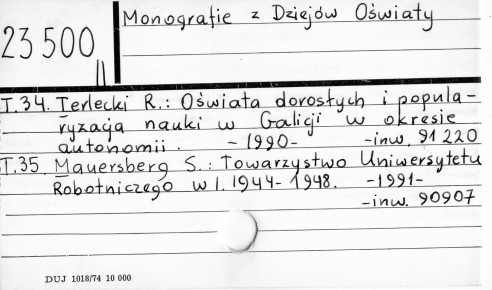 Monografie z Dziejów Oświaty
23 500
II
T.34. Terlecki R.: Oświata dorosłych i popula-
ryzacja nauki w Galicji w okresie
autonomii. -1990- -inw. 91 220
T.35 Mauersberg S.: Towarzystwo Uniwersytetu
Robotniczego w l. 1944-1948. -1991-
-inw. 90907
DUJ 1018/74 10 000